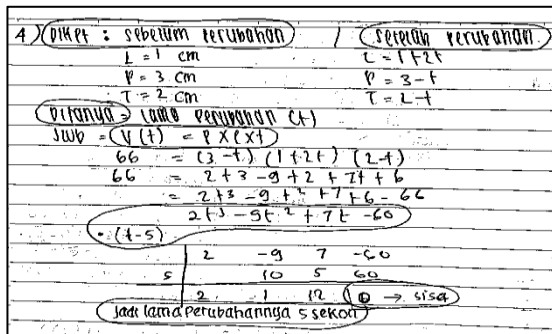 4) Diket : sebelum perubahan / setelah perubahan
L = 1 cm L = 1+2t
P = 3 cm P = 3-t
T = 2 cm T = 2-t
Ditanya = lama perubahan (t)
Jwb = V(t) = P x l x t
66 = (3-t) (1+2t) (2-t)
66 = 2t3 - 9t2 + 7t + 6
= 2t3 - 9t2 + 7t + 6 - 66
2t3 - 9t2 + 7t - 60
• (t-5)
2 -9 7 -60
5 10 5 60
2 1 12 0 → sisa
Jadi lama perubahannya 5 sekon